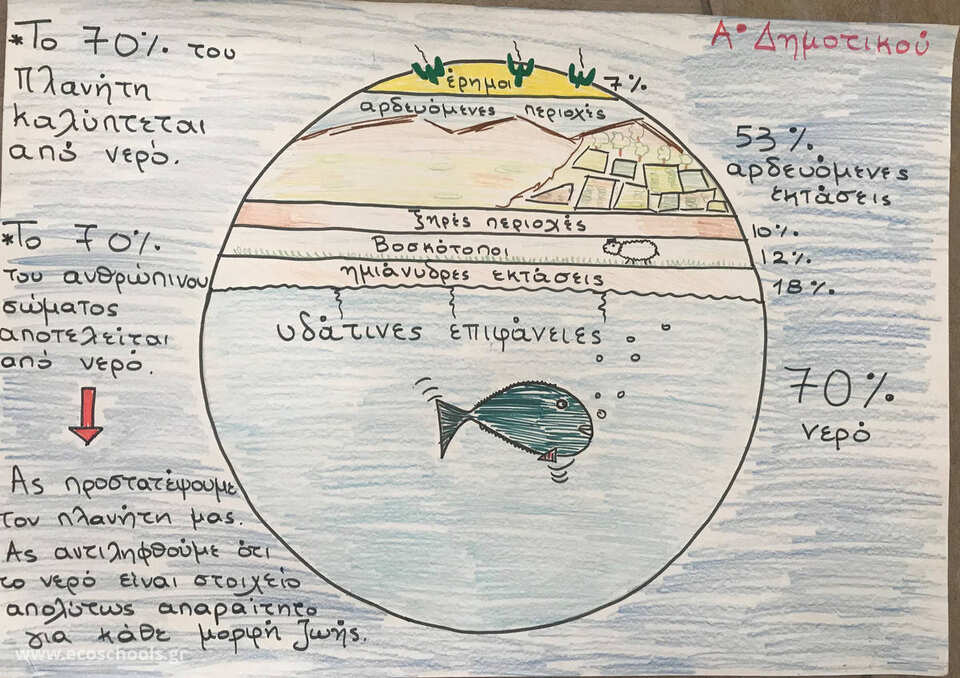 *Το 70% του
Πλανήτη
καλύπτεται
από νερό.
*Το 70%
του ανθρώπινου
σώματος
αποτελείται
από νερό.
Ας προστατέψουμε
τον πλανήτη μας.
Ας αντιληφθούμε ότι
το νερό είναι στοιχείο
απολύτως απαραίτητο
για κάθε μορφή ζωής.
www.ecoschools.gr
έρημοι 7%
αρδευόμενες περιοχές
ξηρές περιοχές
Βοσκότοποι
ημιάνυδρες εκτάσεις
υδάτινες επιφάνειες
Α' Δημοτικού
53%
αρδευόμενες
εκτάσεις
10%
12%
18%
70%
νερό